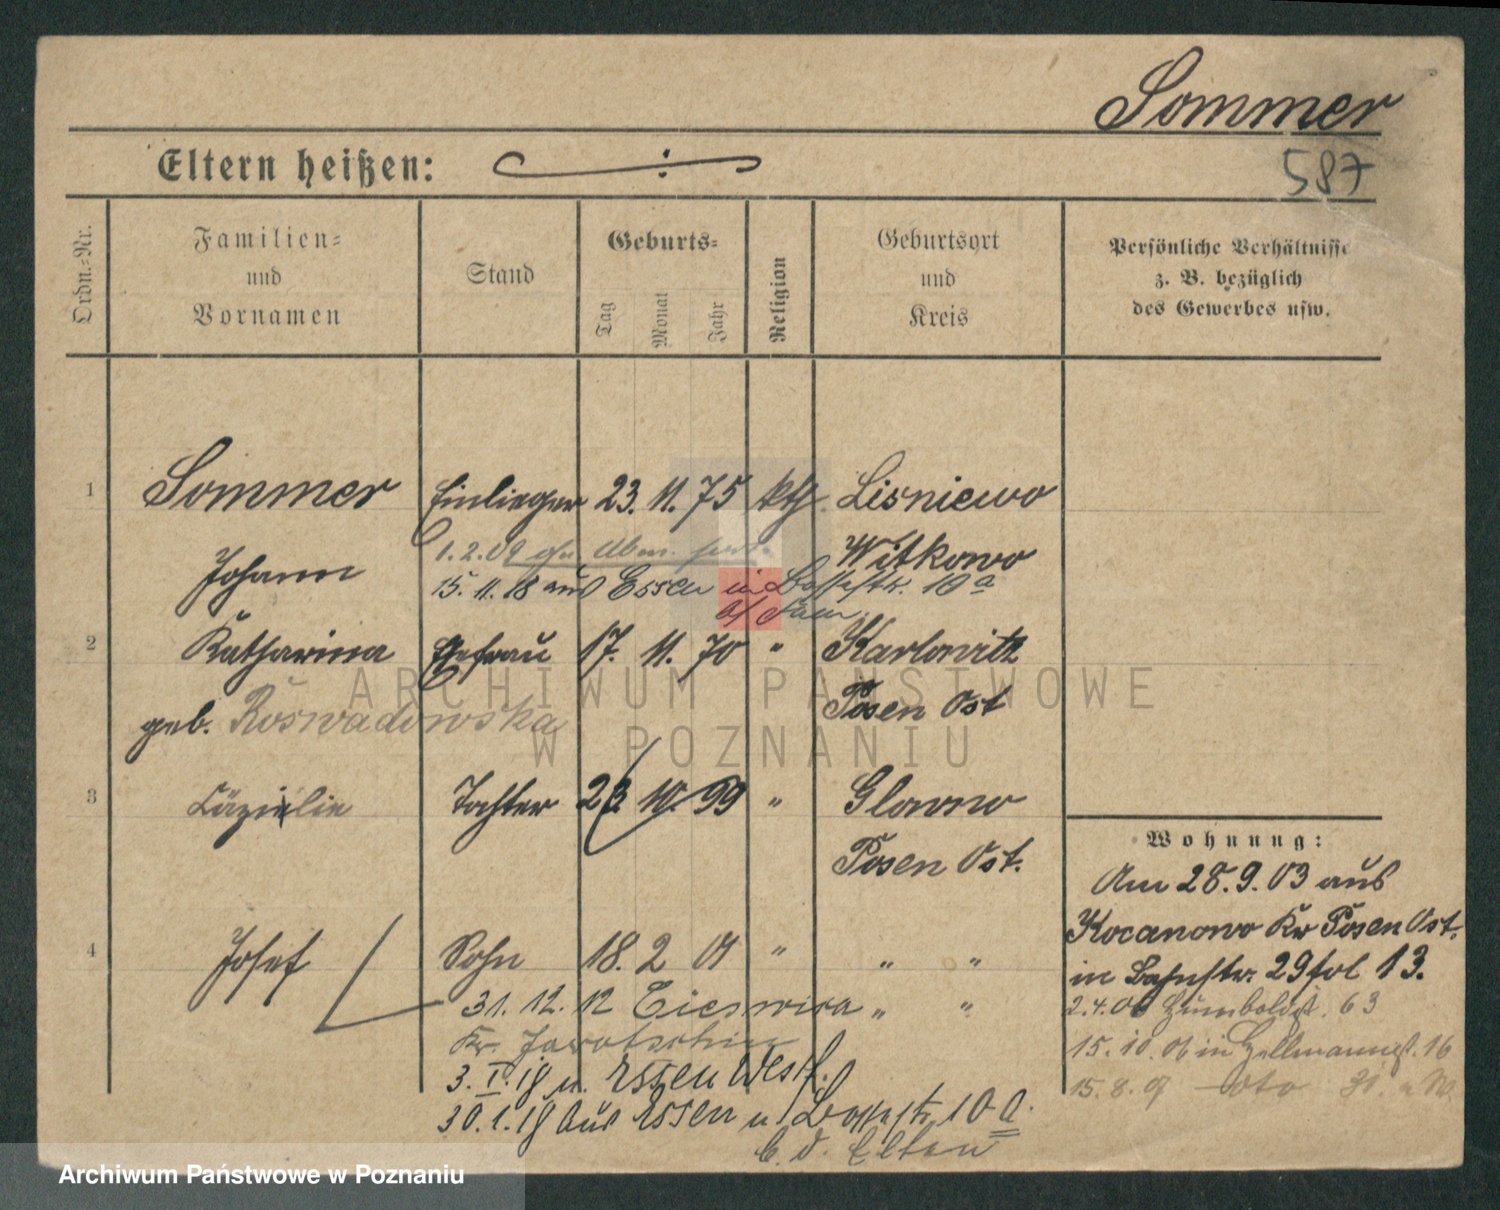 Sommer
587
Eltern heißen:
Ordn.=Nr.
Familien=
und
Vornamen
Stand
Geburts=
Tag
Monat
Jahr
Religion
Geburtsort
und
Kreis
Persönliche Verhältnisse
z. B. bezüglich
des Gewerbes usw.
1 Sommer Einlieger 23. 11. 75 kth. Lisniewo
Johann
1. 2. 09
Witkowo
15. 11. 18 aus Essen in 10a
2 Katharina Ehefrau 17. 11. 70 " Karlowitz
geb. Roswadowska
Posen Ost
3 Cäzilie Tochter 10. 99 " Glowno
Posen Ost.
4 Josef Sohn 18. 2 01 " " "
31. 12. 12 " "
Kr. Jarotschin
3. I. 18 n. Essen West.
30. 1. 18 aus Essen n. 10 a.
b. d. Eltern
Wohnung:
Am 28. 9. 03 aus
Kocanowo Kr Posen Ost.
in Bahnstr. 29 fol 13.
2. 4. 06 Humboldst. 63
15. 10. 06 in Hellmannst. 16
15. 8. 07 dto
ARCHIWUM PAŃSTWOWE
W POZNANIU
Archiwum Państwowe w Poznaniu